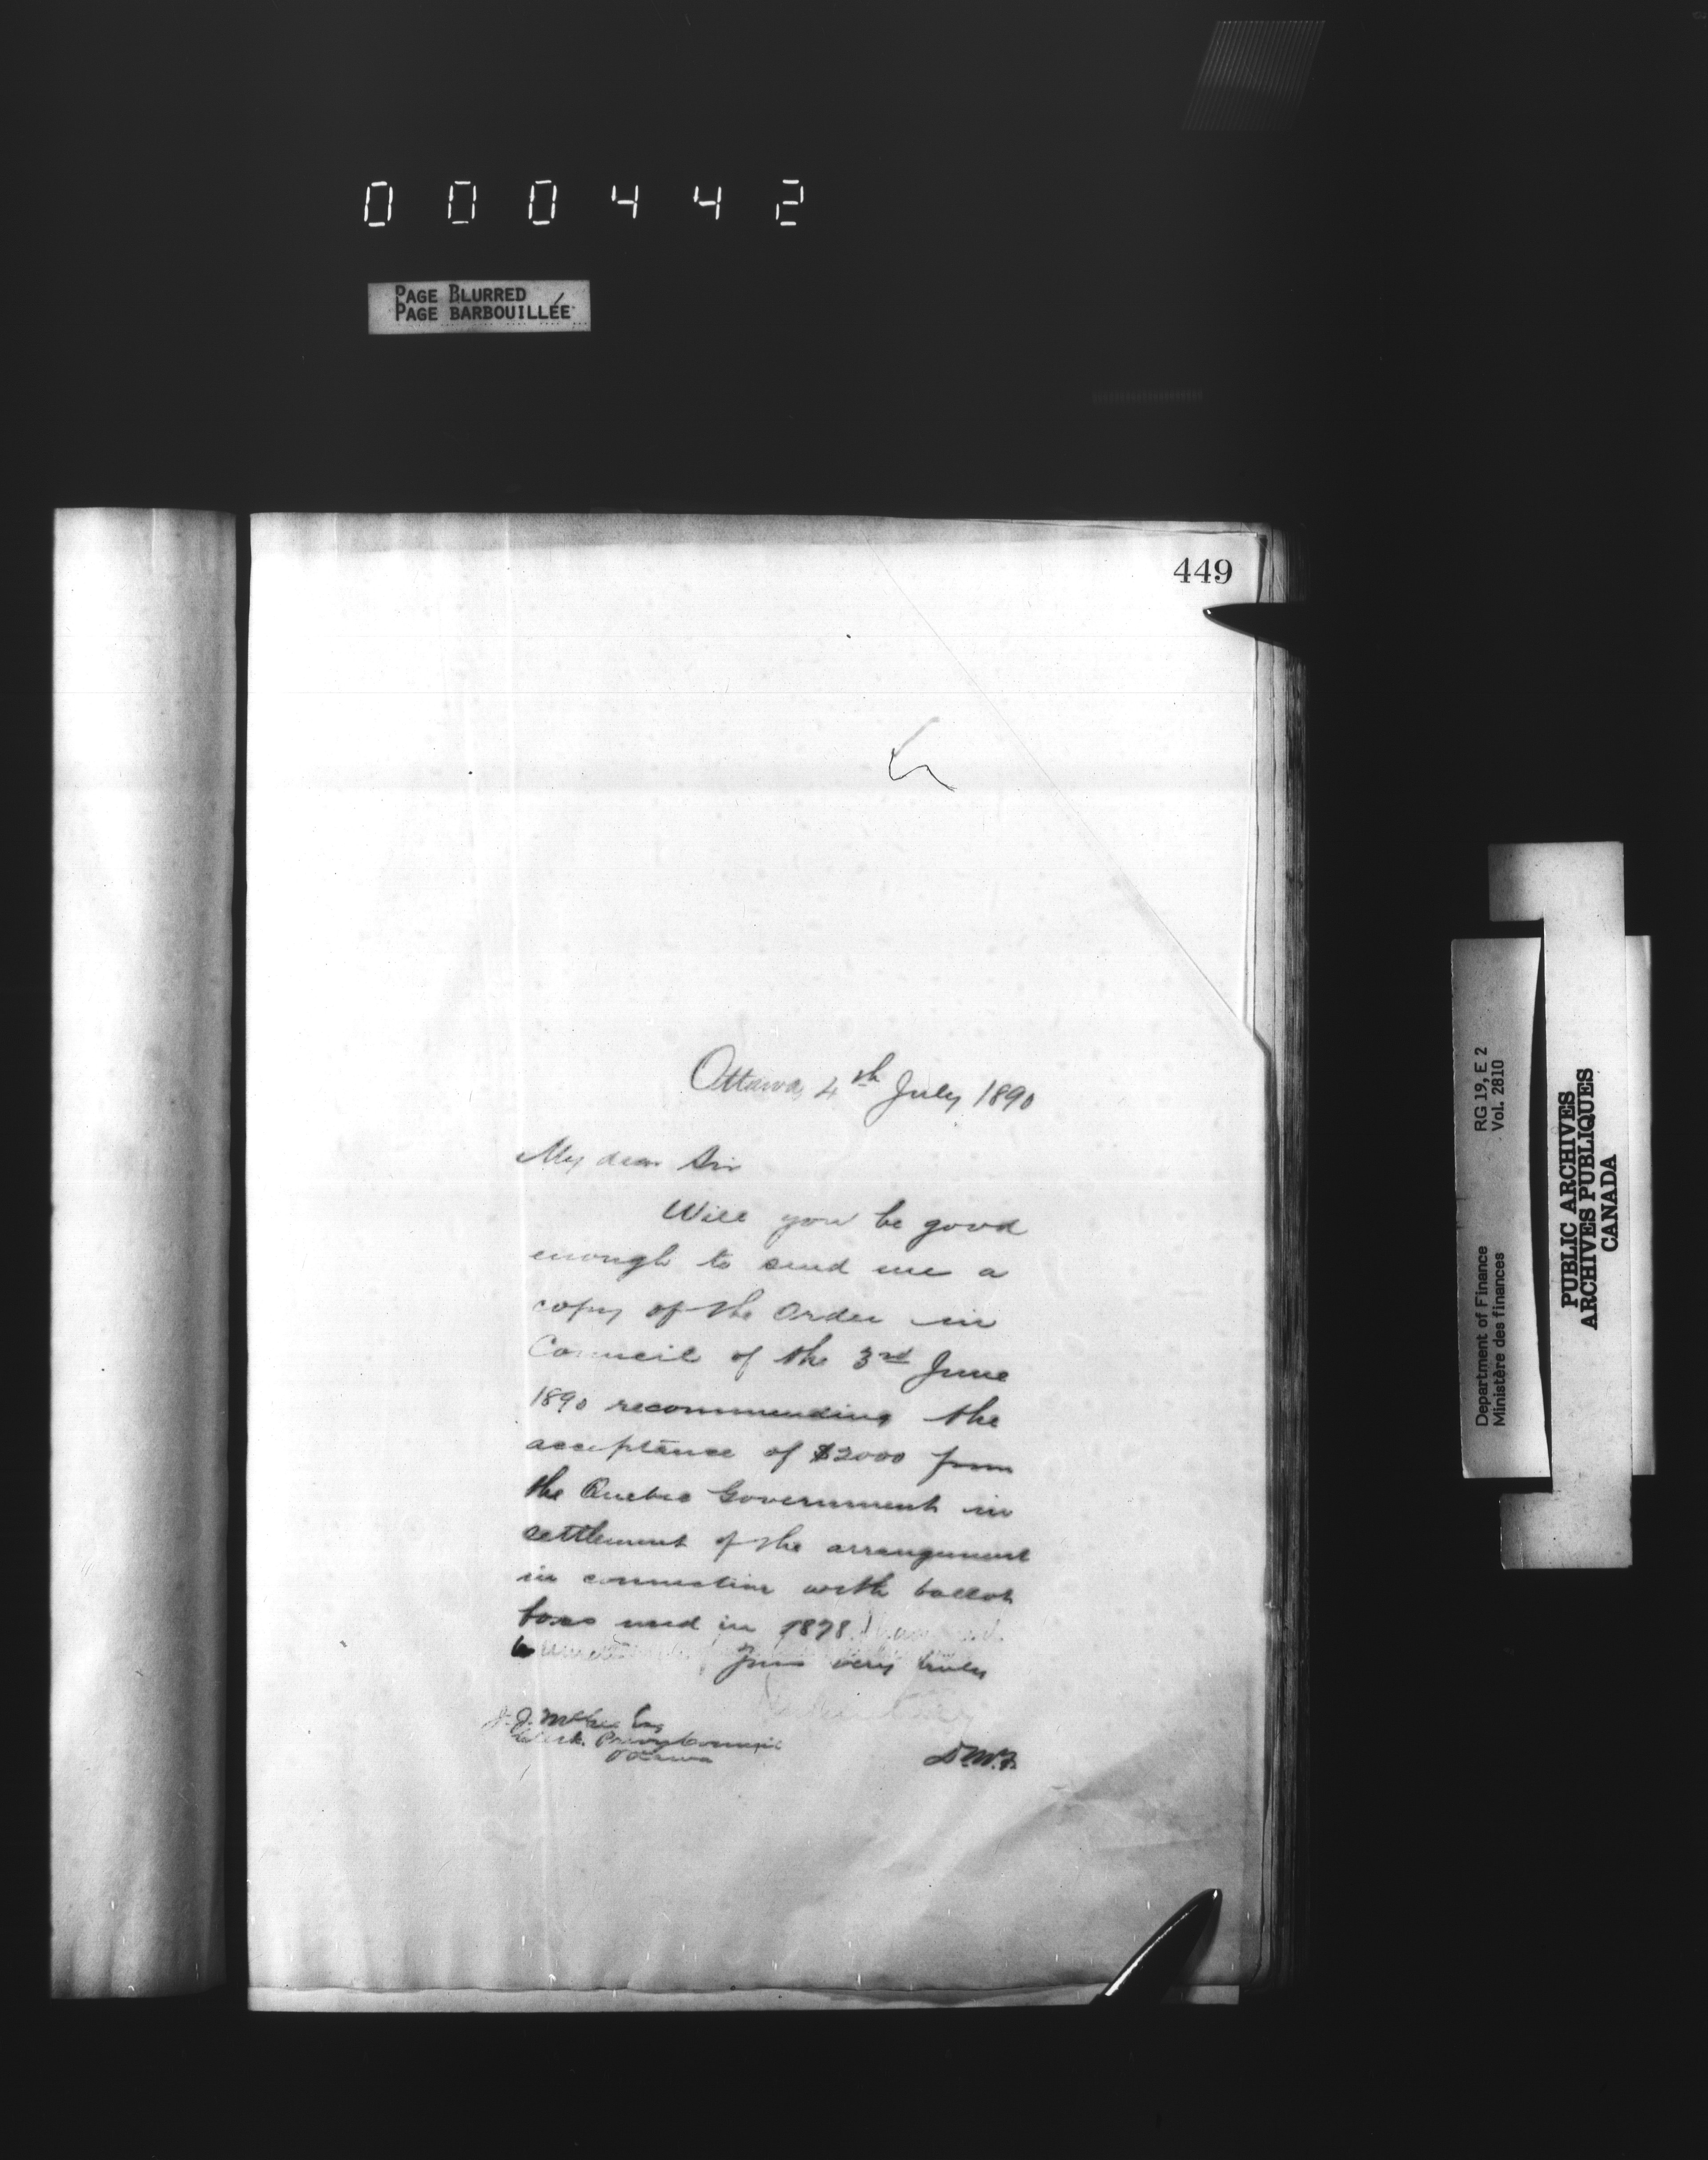 000442
PAGE BLURRED
PAGE BARBOUILLÉE
449
Ottawa, 4th July 1890
My dear Sir
Will you be good
enough to send me a
copy of the Order in
Council of the 3rd June
1890 recommending the
acceptance of $2000 from
the Quebec Government in
settlement of the arrangement
in connection with ballot
boxes used in 1878
Yours very truly
J. J. McGee Esq
Clerk. Privy Council
Ottawa
D.M.F.
RG 19, E 2
Vol. 2810
Department of Finance
Ministère des finances
PUBLIC ARCHIVES
ARCHIVES PUBLIQUES
CANADA